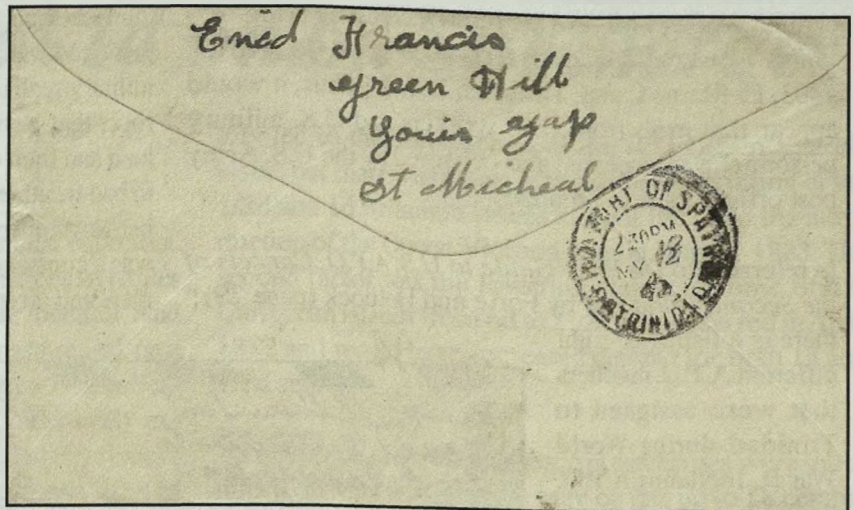 Ened Francis
Green Hill
Youis Gap
St Micheal
PORT OF SPAIN
2 30PM
MY 12
TRINIDAD